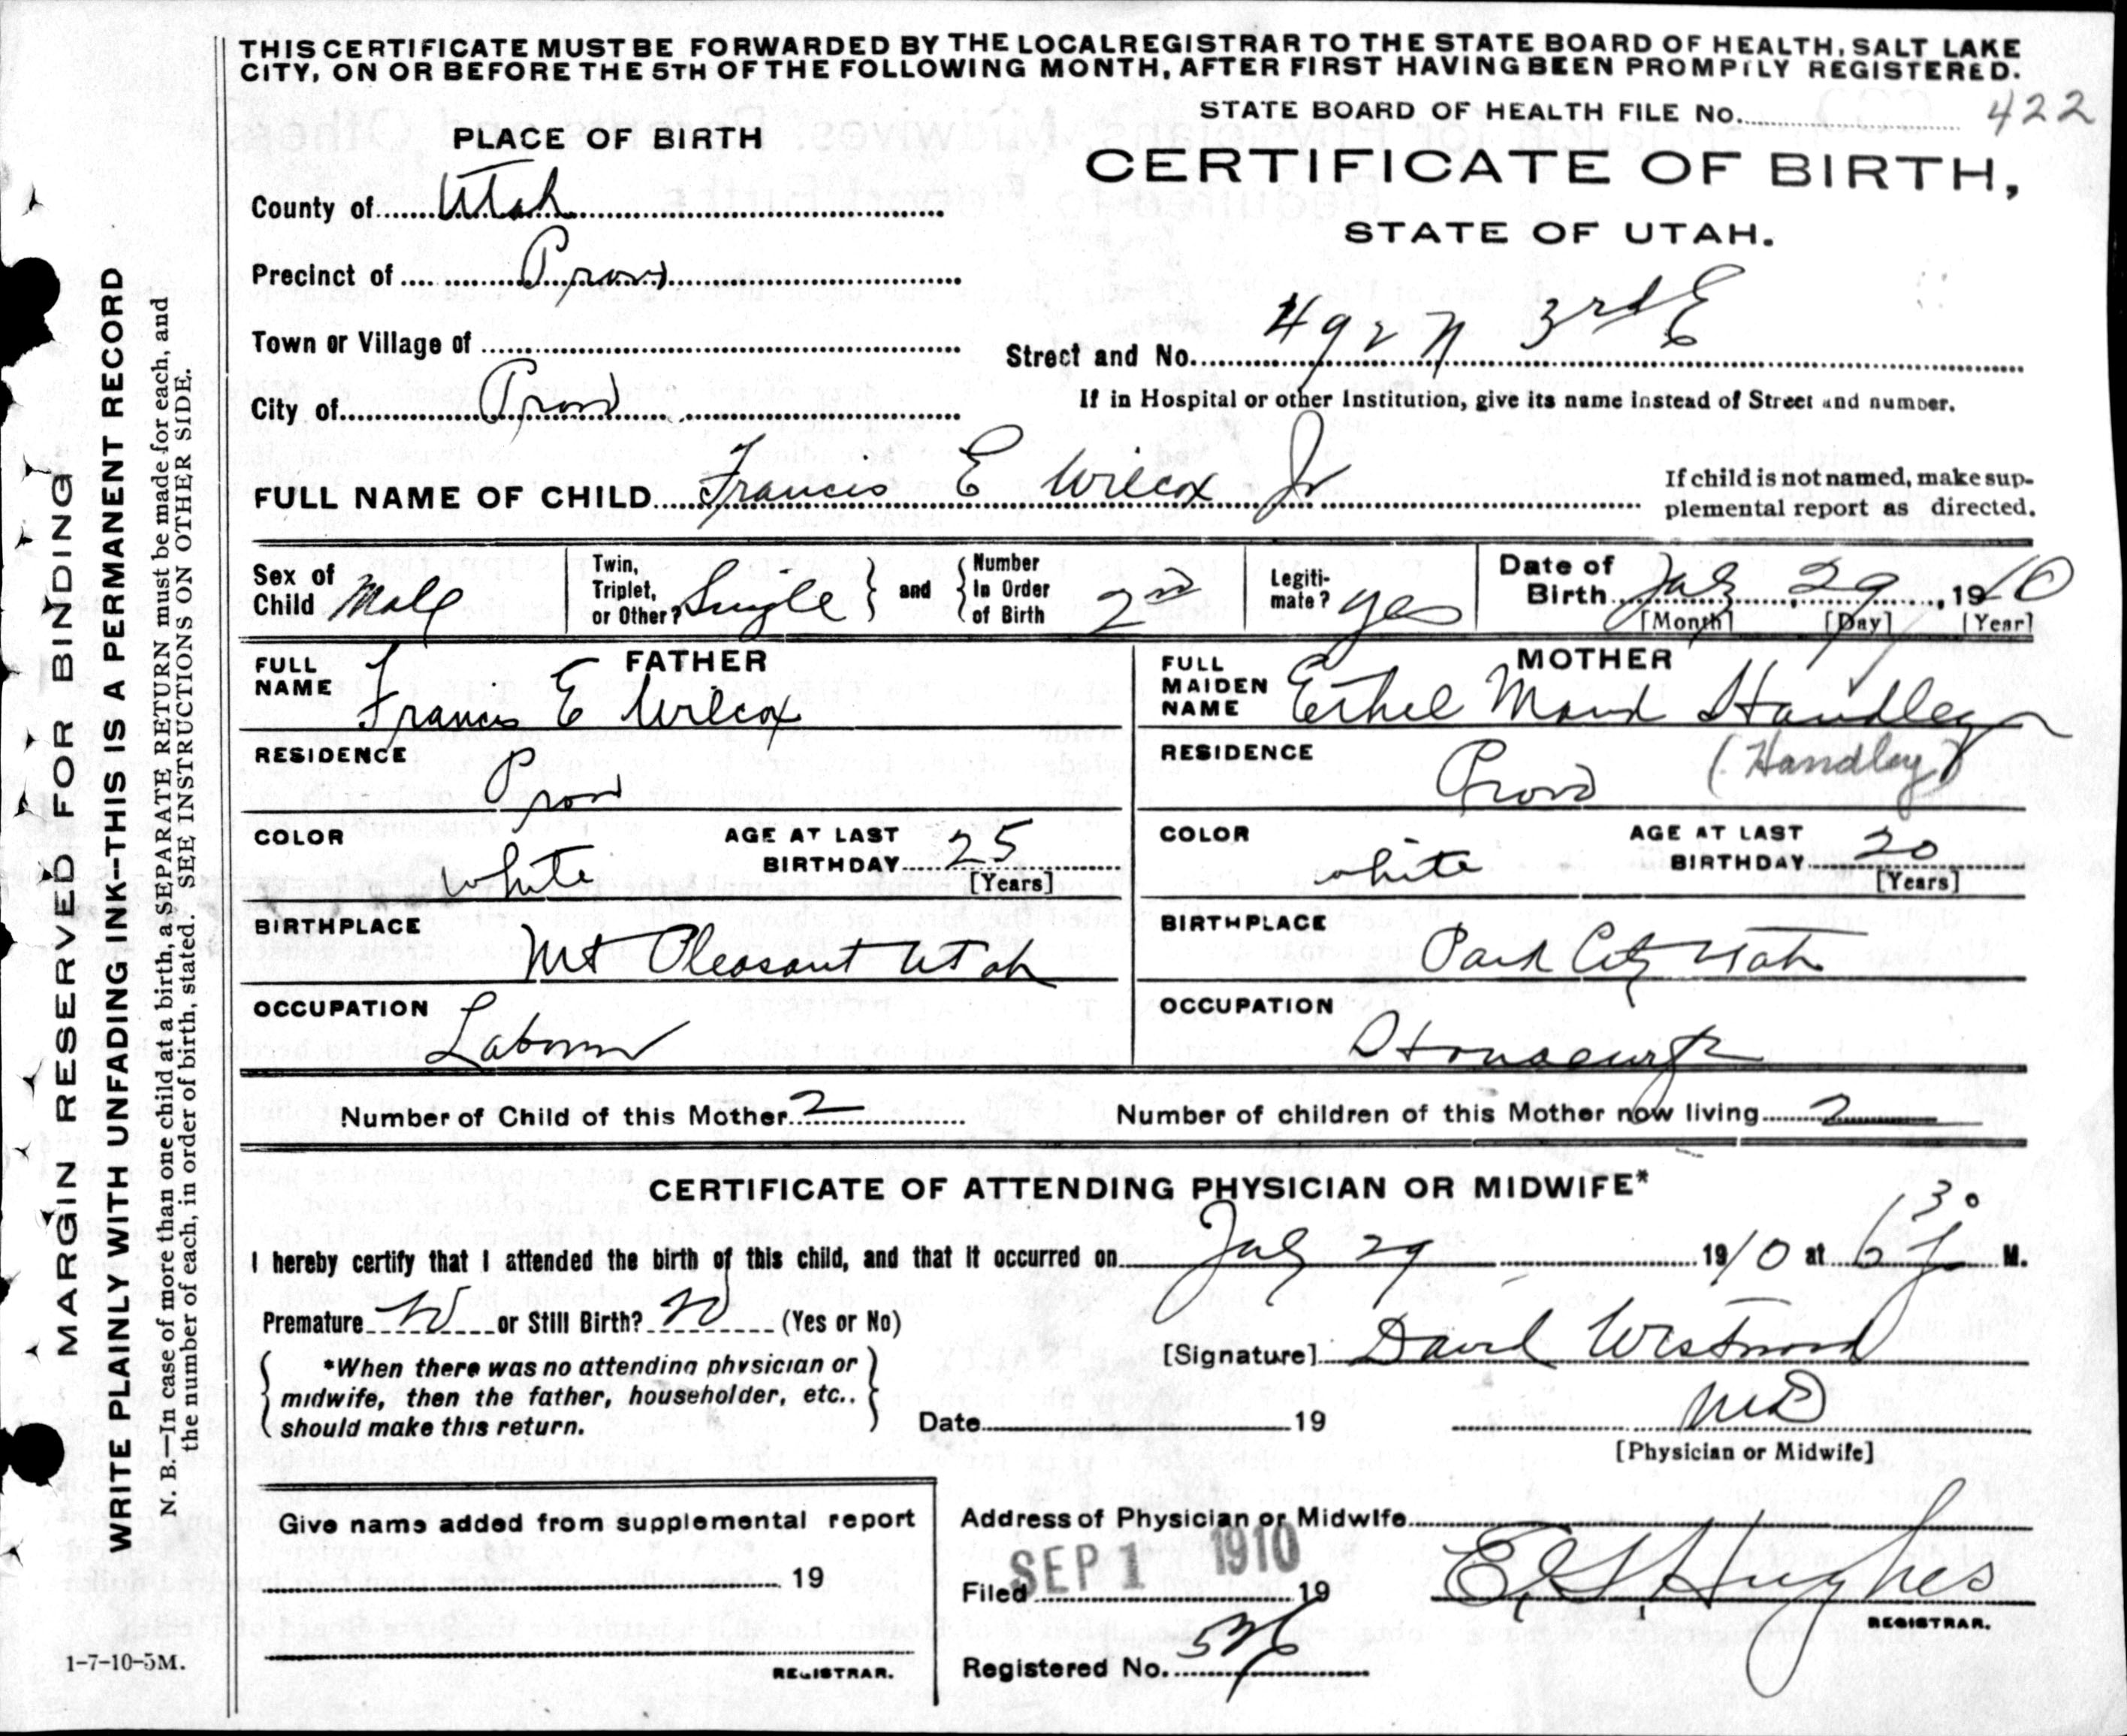 THIS CERTIFICATE MUST BE FORWARDED BY THE LOCALREGISTRAR TO THE STATE BOARD OF HEALTH, SALT LAKE
CITY, ON OR BEFORE THE 5TH OF THE FOLLOWING MONTH, AFTER FIRST HAVING BEEN PROMPILY REGISTERED.
STATE BOARD OF HEALTH FILE No. 422
PLACE OF BIRTH
CERTIFICATE OF BIRTH,
STATE OF UTAH.
County of Utah
Precinct of Provo
Town or Village of
Street and No. 492 N 3rd E
City of Provo
If in Hospital or other Institution, give its name instead of Street and number.
FULL NAME OF CHILD Francis E Wilcox Jr
If child is not named, make sup-
plemental report as directed.
Sex of Child Male
Twin, Triplet, or Other? Single
and
Number In Order of Birth 2nd
Legiti-mate? yes
Date of Birth July 29, 1910
[Month] [Day] [Year]
FATHER
FULL NAME Francis E Wilcox
RESIDENCE Provo
COLOR white
AGE AT LAST BIRTHDAY 25
[Years]
BIRTHPLACE Mt Pleasant Utah
OCCUPATION Laborer
MOTHER
FULL MAIDEN NAME Ethel Maud Handley
(Handley)
RESIDENCE Provo
COLOR white
AGE AT LAST BIRTHDAY 20
[Years]
BIRTHPLACE Park City Utah
OCCUPATION Housewife
Number of Child of this Mother 2
Number of children of this Mother now living 2
CERTIFICATE OF ATTENDING PHYSICIAN OR MIDWIFE*
I hereby certify that I attended the birth of this child, and that it occurred on July 29 1910 at 6 30 P M.
Premature No or Still Birth? No (Yes or No)
*When there was no attending physician or
midwife, then the father, householder, etc.,
should make this return.
[Signature] David Westwood
Date 19
MD
[Physician or Midwife]
Give name added from supplemental report
19
REGISTRAR.
Address of Physician or Midwife
Filed SEP 1 1910 19
Hughes
REGISTRAR.
Registered No.
1-7-10-5M.
MARGIN RESERVED FOR BINDING
WRITE PLAINLY WITH UNFADING INK--THIS IS A PERMANENT RECORD
N. B.—In case of more than one child at a birth, a SEPARATE RETURN must be made for each, and
the number of each, in order of birth, stated. SEE INSTRUCTIONS ON OTHER SIDE.